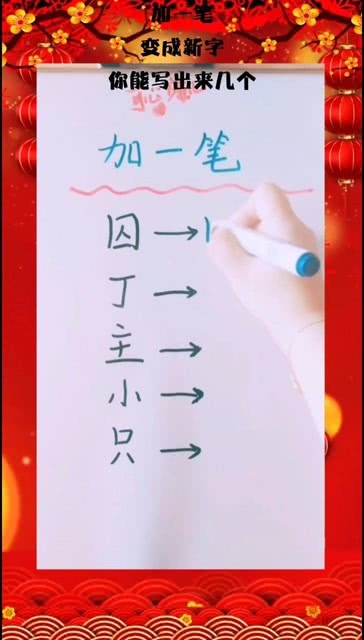 加一笔
变成新字
你能写出来几个
加一笔
囚→
丁→
主→
小→
只→